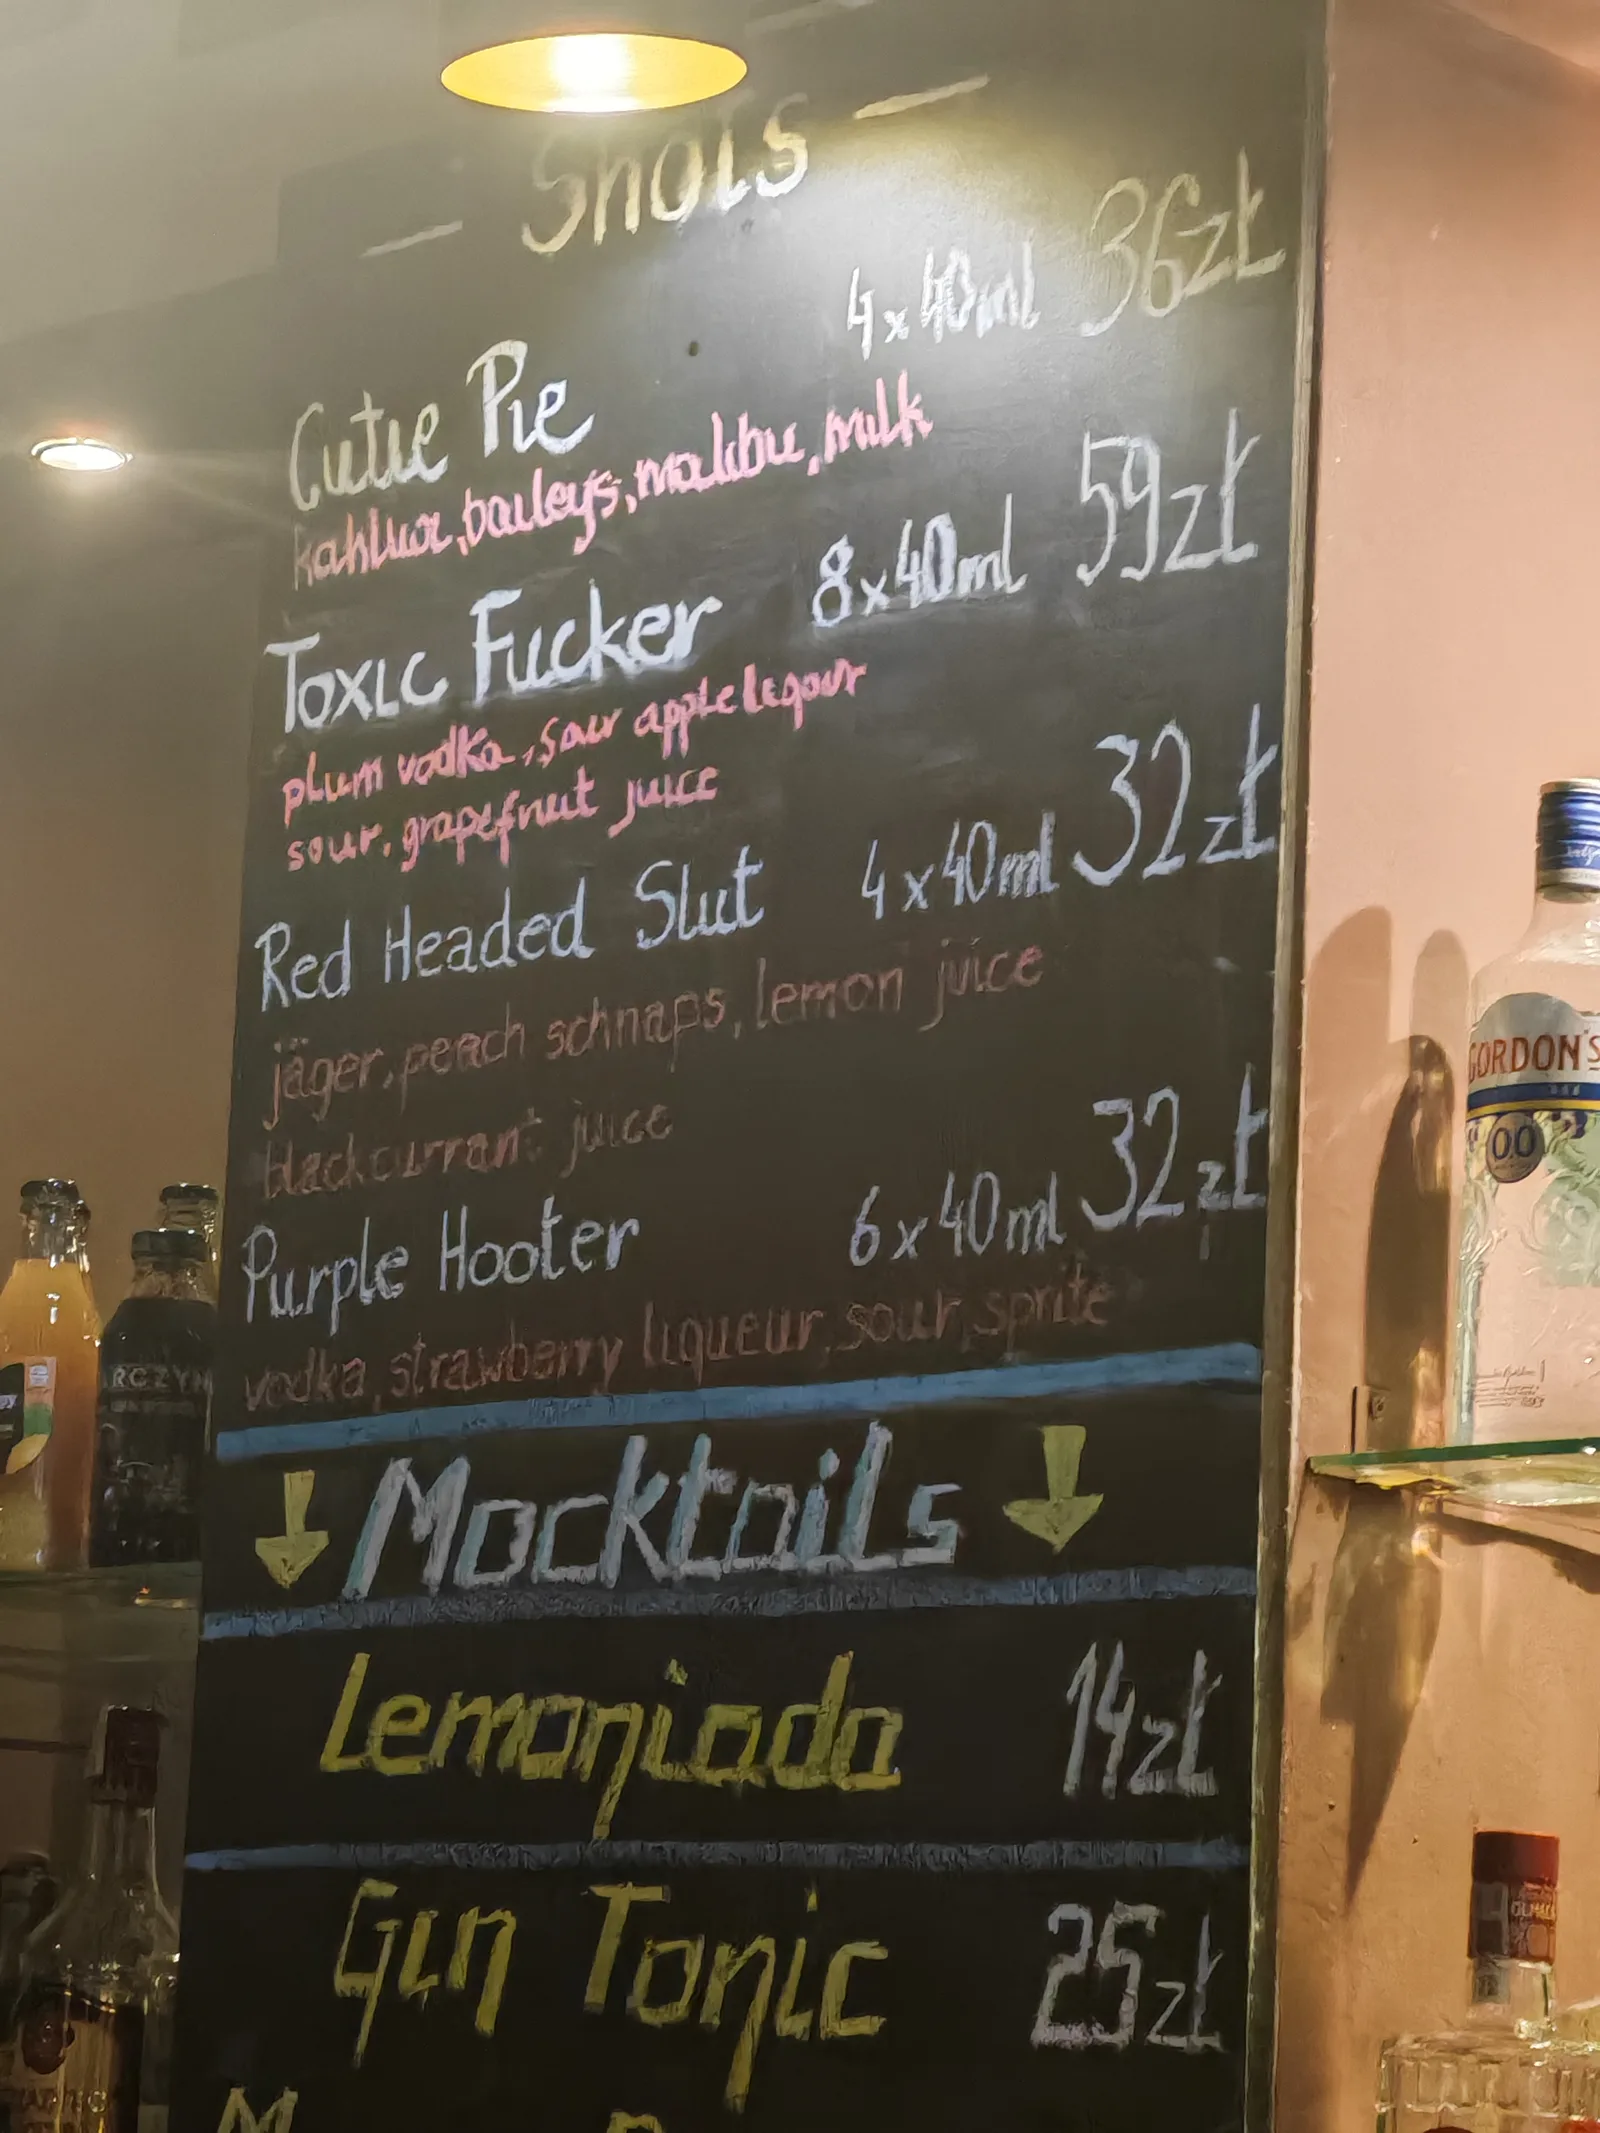 Shots
Cutie Pie 4x40ml 36zł
kahlua, baileys, malibu, milk
Toxic Fucker 8x40ml 59zł
plum vodka, sour apple liqour
sour, grapefruit juice
Red Headed Slut 4x40ml 32zł
jäger, peach schnaps, lemon juice
blackcurrant juice
Purple Hooter 6x40ml 32zł
vodka, strawberry liqueur, sour, sprite
Mocktails
Lemoniada 14zł
Gin Tonic 25zł
GORDON'S
0.0
OLMECA